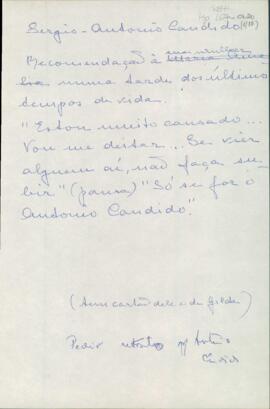 Sergio - Antonio Candido
Recomendação à sua mulher
numa tarde dos últimos
tempos de vida.
"Estou muito cansado...
Vou me deitar... Se vier
alguem aí, não faça su-
bir" (pausa) "Só se for o
Antonio Candido".
(Anu cartão dele e da Gilda)
Pedir retrato